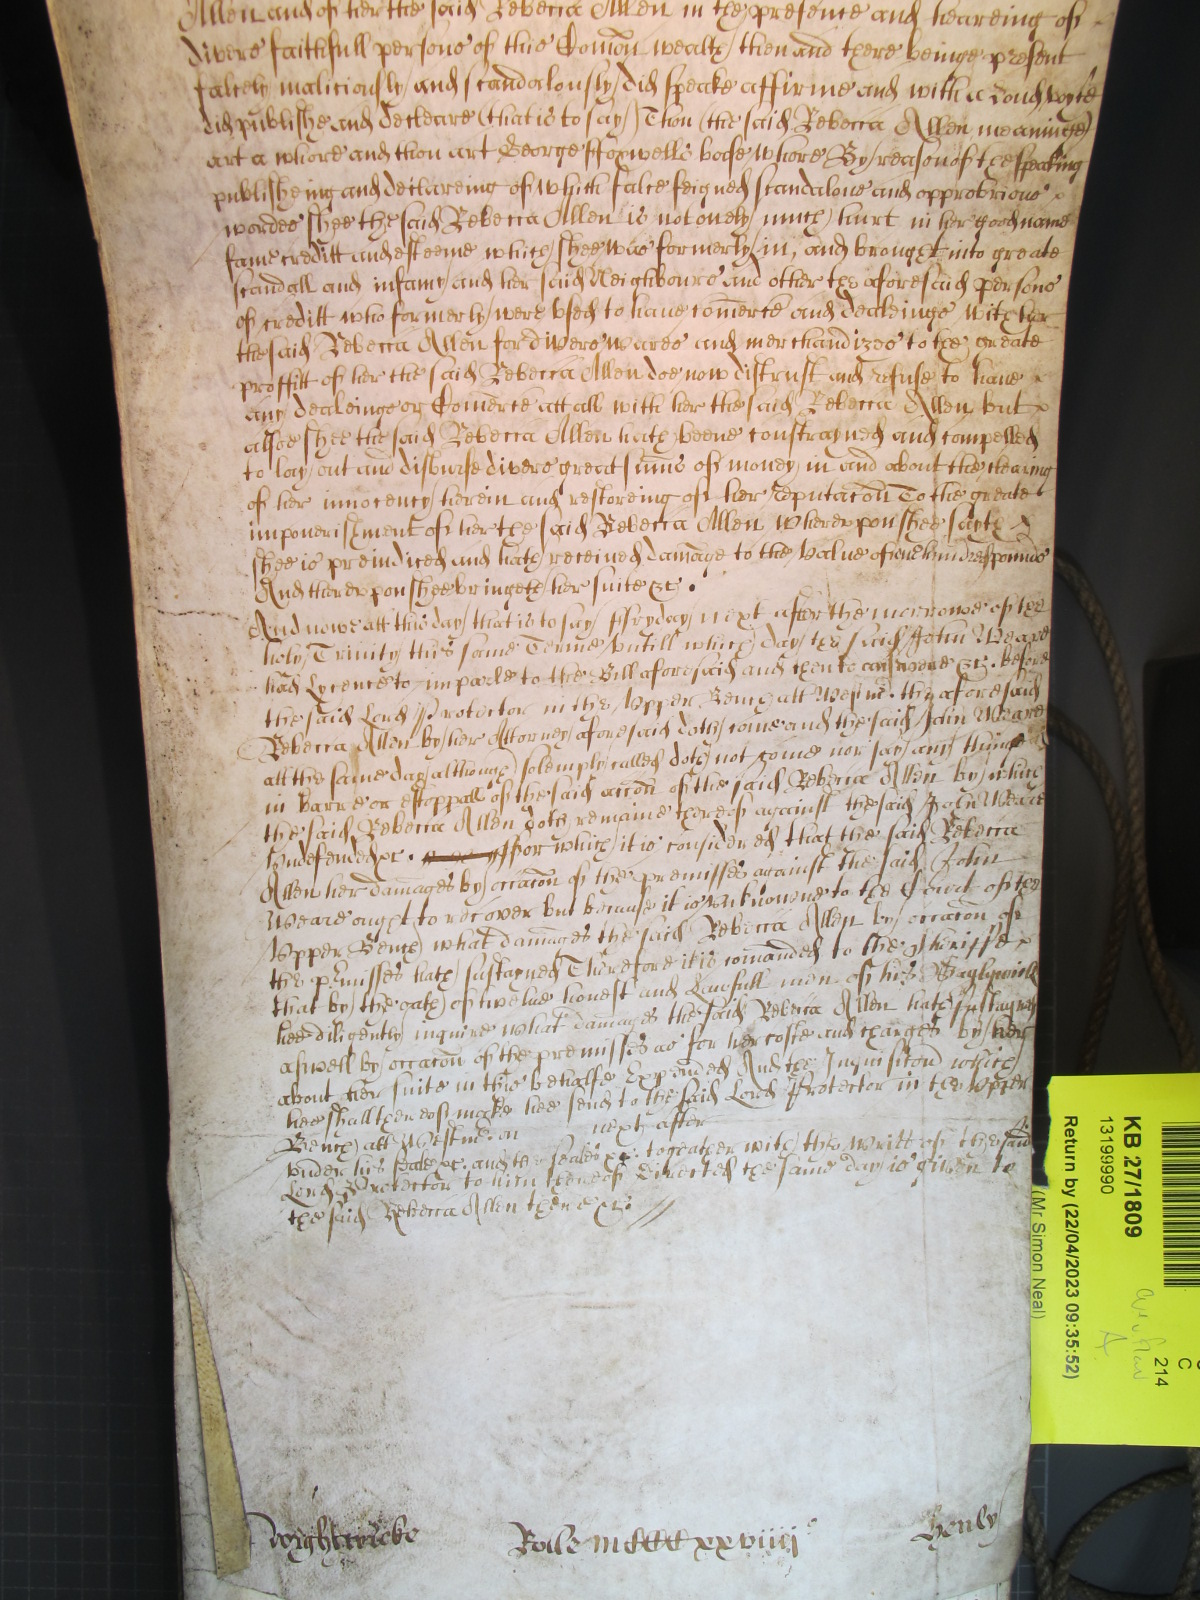 Allen and of her the said Rebecca Allen in the presence and heareing of
divers faithfull persons of this Comon wealth then and there beinge present
falcely maliciously and scandalously did speake affirme and with a Loud voyce
did publishe and decleare (that is to say) Thou (the said Rebecca Allen meaninge)
art a whore and thou art George ffoxwells base whore By reason of the speaking
publisheing and declareing of which false feigned scandalous and opprobrious
wordes shee the said Rebecca Allen is not onely much hurt in her good name
fame creditt and esteeme which shee was formerly in, and brought into greate
scandall and infamy and her said Neighbours and other the aforesaid persons
of creditt who formerly were used to have comerce and dealeinge with her
the said Rebecca Allen for divers wares and merchandizes to the greate
proffitt of her the said Rebecca Allen doe now distrust and refuse to have
any dealeinge or Comerce att all with her the said Rebecca Allen but
alsoe shee the said Rebecca Allen hath beene constrayned and compelled
to lay out and disburse divers great sums of money in and about the clearing
of her innocency herein and restoreing of her reputacon To the greate
impoverishment of her the said Rebecca Allen Whereupon shee sayth
shee is preiudiced and hath received damage to the value of one hundred pounds
And thereupon shee bringeth her suite &c.
And nowe att this day that is to say ffryday next after the morrowe of the
holy Trinity this same Terme untill which day the said John Weare
had Lycence to imparle to the Bill aforesaid and then to answere &c. before
the said Lord Protector in the Upper Bench att Westm̃. the aforesaid
Rebecca Allen by her Attorney aforesaid doth come and the said John Weare
att the same day although solemply called doth not come nor say any thinge
in barre or estoppall of the said accon of the said Rebecca Allen by which
the said Rebecca Allen doth remaine thereof against the said John Weare
Undefended &c. ffor which it is considered that the said Rebecca
Allen her damages by occacon of the premisses against the said John
Weare ought to recover but because it is unknowne to the Court of the
Upper Bench what damages the said Rebecca Allen by occacon of
the p'misses hath sustayned Therefore it is comanded to the Sheriffe
that by the oath of twelve honest and Lawfull men of his Baylywick
hee diligently inquire what damages the said Rebecca Allen hath sustayned
aswell by occacon of the premisses as for her costs and charges by her
about her suite in this behalfe Expended And the Inquisicon which
hee shall thereof make hee send to the said Lord Protector in the Upper
Bench att Westm̃. on next after
under his seale &c. and the seales &c. together with the writt of the said
Lord Protector to him thereof directed the same day is given to
the said Rebecca Allen there &c.
Wightwicke Rolle mccccxxviiij Henly
KB 27/1809
13199990
Return by (22/04/2023 09:35:52)
(Mr Simon Neal)
C
214